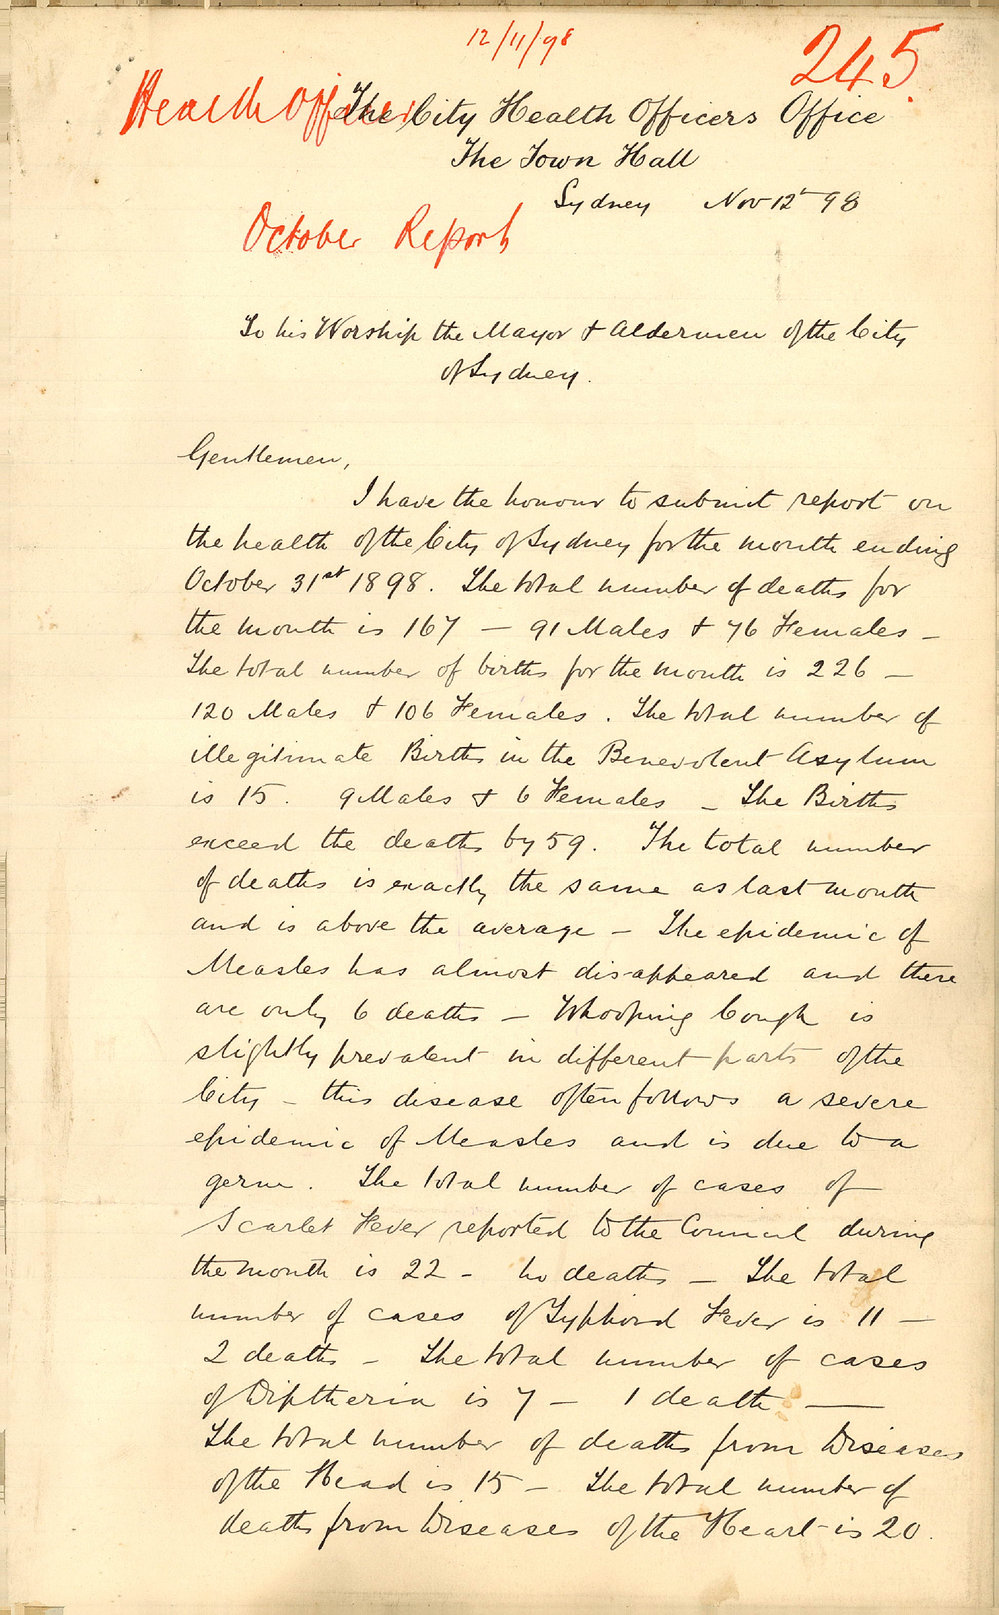 12/11/98
245.
Health Officer
The City Health Officers Office
The Town Hall
Sydney Nov 12th 98
October Report
To his Worship the Mayor & Aldermen of the City
of Sydney.
Gentlemen,
I have the honour to submit report on
the health of the City of Sydney for the month ending
October 31st 1898. The total number of deaths for
the month is 167 — 91 Males & 76 Females —
The total number of births for the month is 226 —
120 Males & 106 Females. The total number of
illegitimate Births in the Benevolent Asylum
is 15. 9 Males & 6 Females — The Births
exceed the deaths by 59. The total number
of deaths is exactly the same as last month
and is above the average — The epidemic of
Measles has almost disappeared and there
are only 6 deaths — Whooping Cough is
slightly prevalent in different parts of the
City — this disease often follows a severe
epidemic of Measles and is due to a
germ. The total number of cases of
Scarlet Fever reported to the Council during
the month is 22 — no deaths — The total
number of cases of Typhoid Fever is 11 —
2 deaths — The total number of cases
of Diptheria is 7 — 1 death —
The total number of deaths from Diseases
of the Head is 15 — The total number of
deaths from Diseases of the Heart is 20.